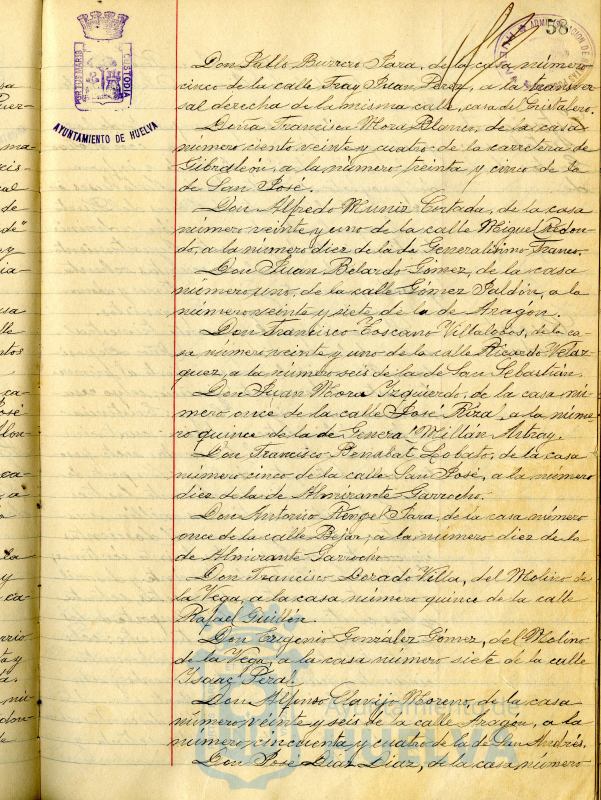 58
PORTUS MARIS
CUSTODIA
AYUNTAMIENTO DE HUELVA
Don Pablo Burrero Jara, de la casa número
cinco de la calle Fray Juan Pérez, a la transver
sal derecha de la misma calle, casa del Cristalero.
Doña Francisca Mora Blanco, de la casa
número ciento veinte y cuatro de la carretera de
Gibraleón, a la número treinta y cinco de la
de San José.
Don Alfredo Muniz Cortada, de la casa
número veinte y uno de la calle Miguel Redon-
do, a la número diez de la de Generalísimo Franco.
Don Juan Belardo Gómez, de la casa
número uno, de la calle Gómez Jaldón, a la
número veinte y siete de la de Aragón.
Don Francisco Toscano Villalobos, de la ca-
sa número veinte y uno de la calle Ricardo Veláz-
quez, a la número seis de la de San Sebastián.
Don Juan Mora Izquierdo, de la casa nú-
mero once de la calle José Rizal, a la núme
ro quince de la de General Millán Astray.
Don Francisco Benabat Lobato, de la casa
número cinco de la calle San José, a la número
diez de la de Almirante Garrocho.
Don Antonio Rengel Jara, de la casa número
once de la calle Bejar, a la número diez de la
de Almirante Garrocho.
Don Francisco Dorado Villa, del Molino de
la Vega, a la casa número quince de la calle
Rafael Guillén.
Don Eugenio González Gómez, del Molino
de la Vega, a la casa número siete de la calle
Isaac Peral.
Don Alfonso Clavijo Moreno, de la casa
número veinte y seis de la calle Aragón, a la
número cincuenta y cuatro de la de San Andrés.
Don José Díaz Díaz, de la casa número
Ayuntamiento de
HUELVA